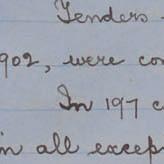 Tenders
902, were con
In 197 c
in all excep